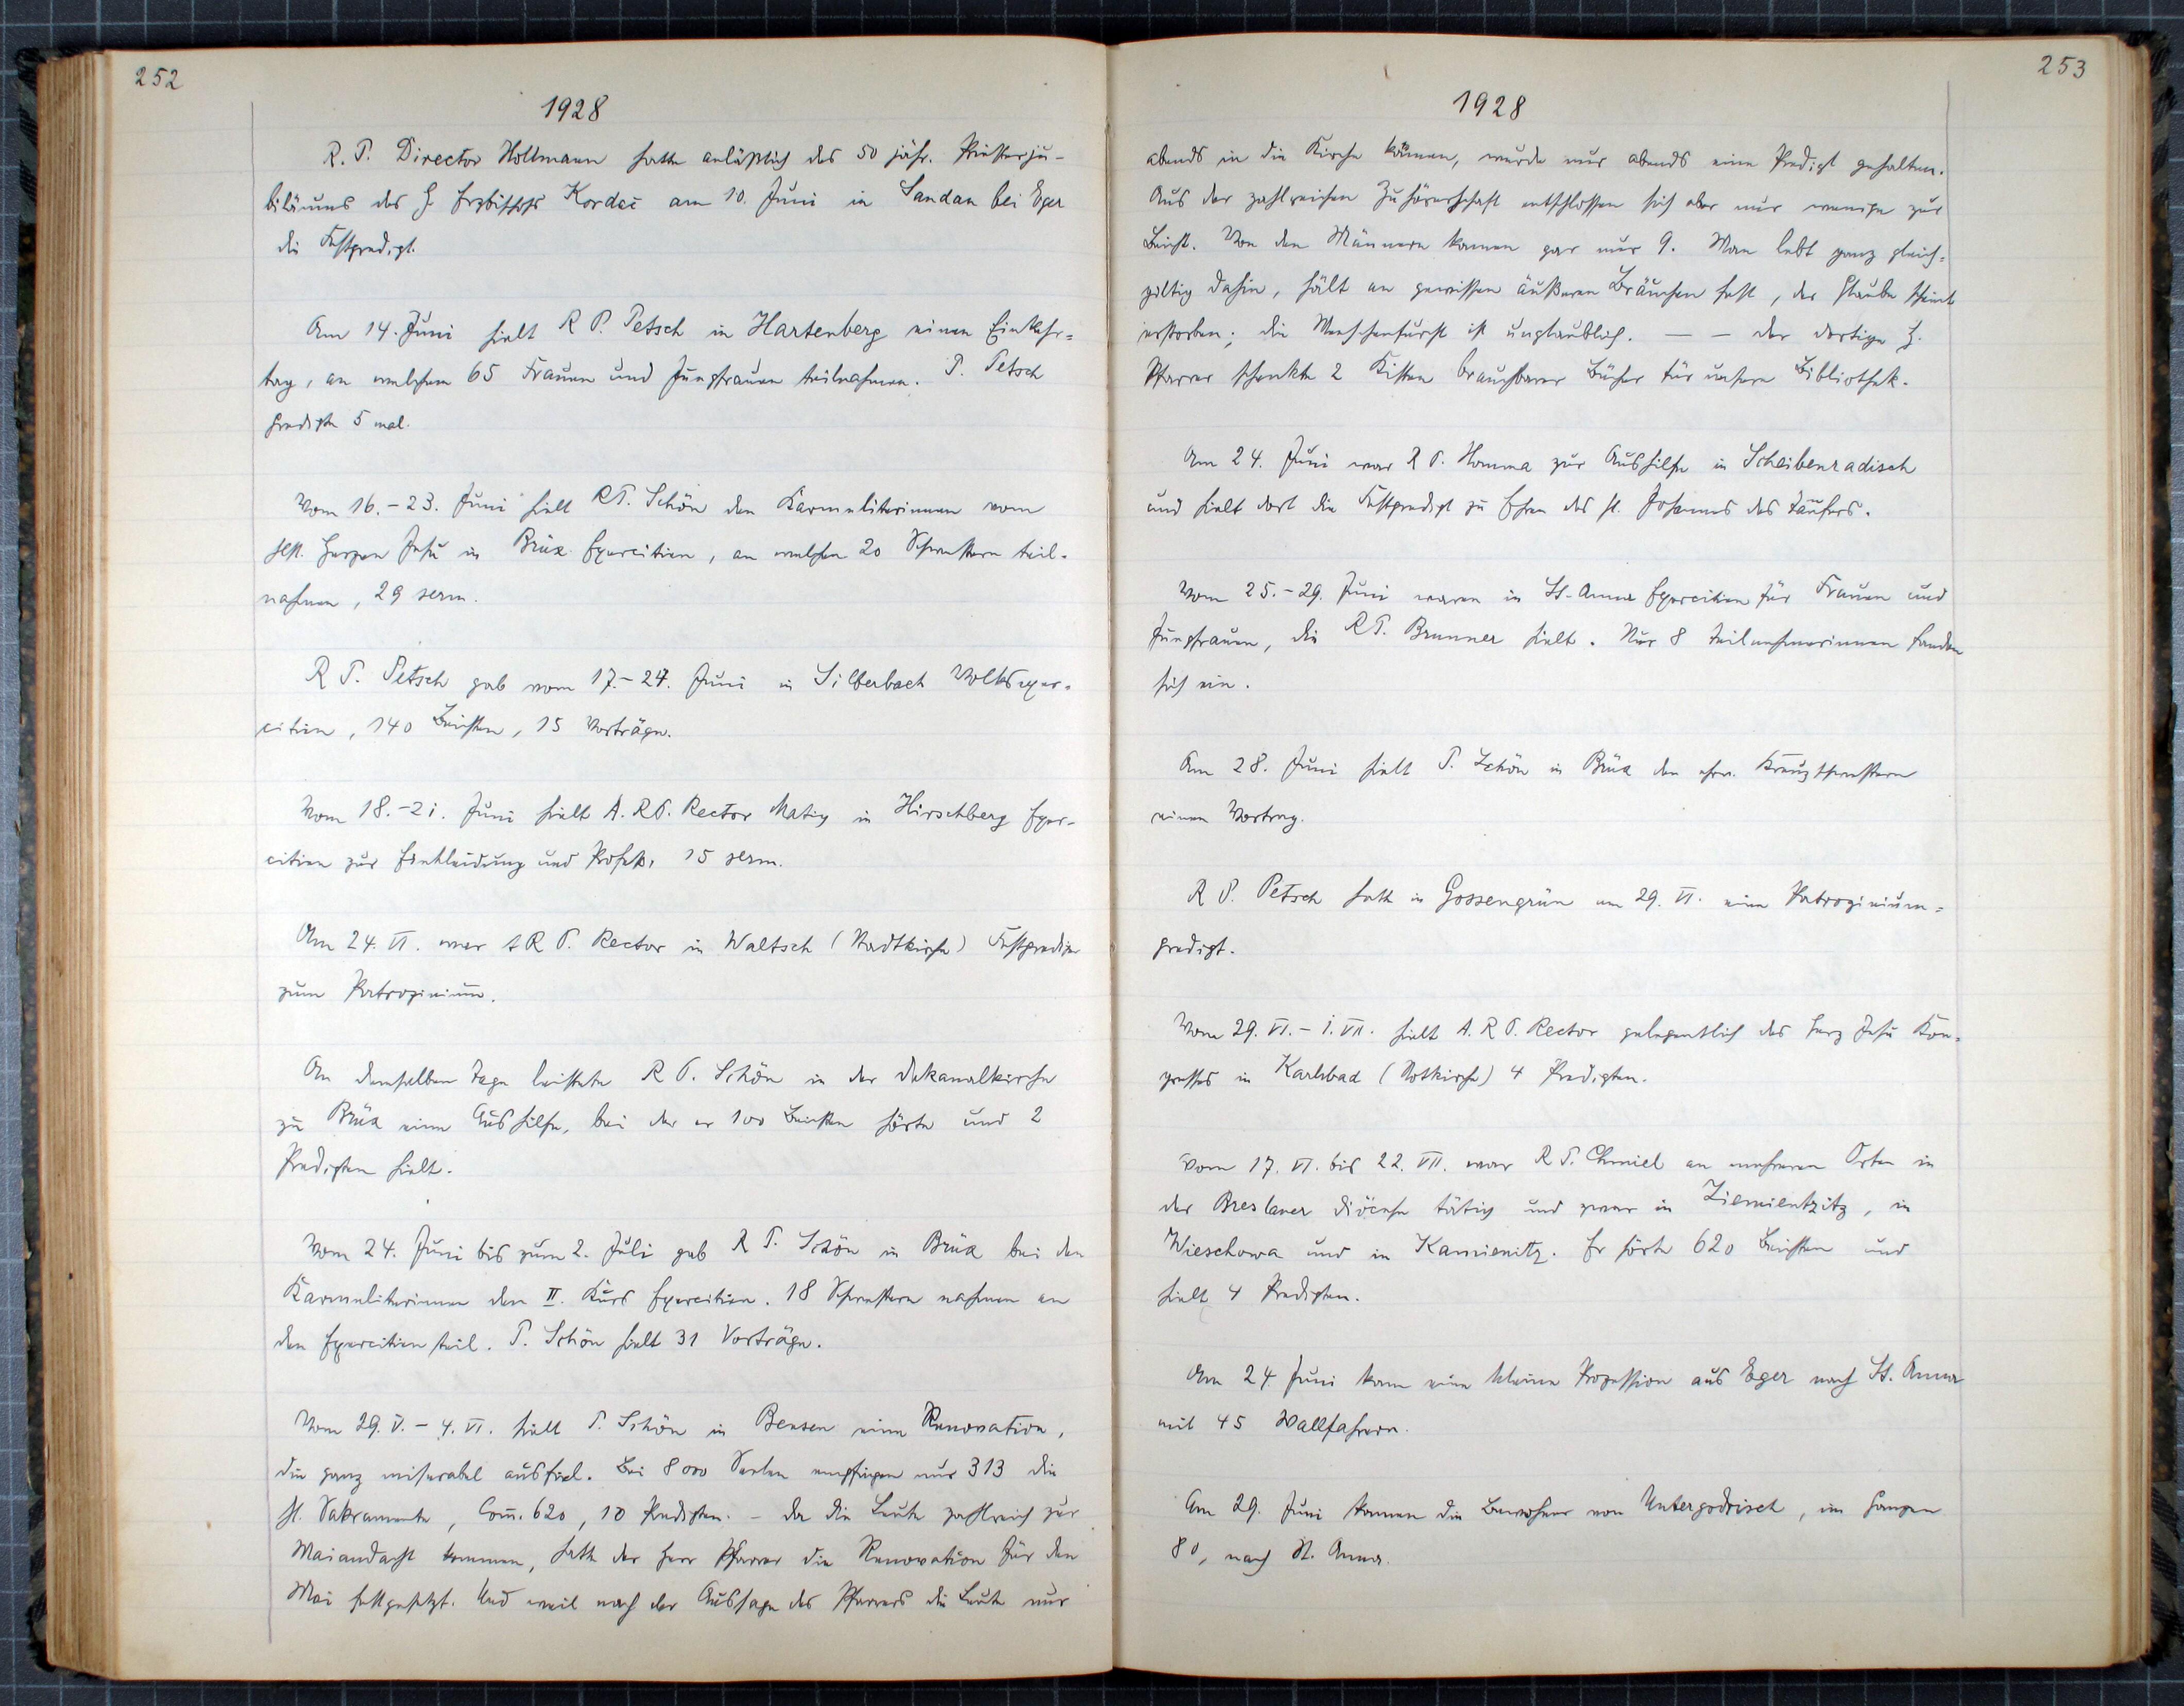 252
1928
R. P. Director Hollmann hatte anläßlich des 50 jähr. Priesterju-
biläums des H. Erzbischofs Kordač am 10. Juni in Sandau bei Eger
die Festpredigt.
Am 14. Juni hielt R P. Petsch in Hartenberg einen Einkehr-
tag, an welchem 65 Frauen und Jungfrauen teilnahmen. P. Petsch
predigte 5 mal.
Vom 16.-23. Juni hielt R P. Schön den Karmeliterinnen vom
hlst. Herzen Jesu in Brüx Exercitien, an welchen 20 Schwestern teil-
nahmen, 29 serm.
R P. Petsch gab vom 17.-24. Juni in Silberbach Volksexer-
citien, 140 Beichten, 15 Vorträge.
Vom 18.-21. Juni hielt A. R P. Rector Matig in Hirschberg Exer-
citien zur Einkleidung und Profeß, 15 serm.
Am 24. VI. war A R P. Rector in Waltsch (Stadtkirche) Festprediger
zum Patrozinium.
An demselben Tage leistete R P. Schön in der Dekanalkirche
zu Brüx eine Aushilfe, bei der er 100 Beichten hörte und 2
Predigten hielt.
Vom 24. Juni bis zum 2. Juli gab R P. Schön in Brüx bei den
Karmeliterinnen den II. Kurs Exercitien. 18 Schwestern nahmen an
den Exercitien teil. P. Schön hielt 31 Vorträge.
Vom 29. V. - 4. VI. hielt P. Schön in Bensen eine Renovation,
die ganz miserabel ausfiel. Bei 8000 Seelen empfingen nur 313 die
hl. Sakramente, Com. 620, 10 Predigten. - Da die Leute zahlreich zur
Maiandacht kommen, hatte der Herr Pfarrer die Renovation für den
Mai festgesetzt. Und weil nach der Aussage des Pfarrers die Leute nur
253
1928
abends in die Kirche kämen, wurde nur abends eine Predigt gehalten.
Aus der zahlreichen Zuhörerschaft entschlossen sich aber nur wenige zur
Beicht. Von den Männern kamen gar nur 9. Man lebt ganz gleich-
giltig dahin, hält an gewissen äußeren Bräuchen fest, der Glaube scheint
erstorben; die Menschenfurcht ist unglaublich. — — Der dortige H.
Pfarrer schenkte 2 Kisten brauchbarer Bücher für unsere Bibliothek.
Am 24. Juni war R P. Homma zur Aushilfe in Scheibenradisch
und hielt dort die Festpredigt zu Ehren des hl. Johannes des Täufers.
Vom 25.-29. Juni waren in St. Anna Exercitien für Frauen und
Jungfrauen, die R P. Brunner hielt. Nur 8 Teilnehmerinnen fanden
sich ein.
Am 28. Juni hielt P. Schön in Brüx den ehrw. Kreuzschwestern
einen Vortrag.
R P. Petsch hatte in Gossengrün am 29. VI. eine Patrozinium-
predigt.
Vom 29. VI. - 1. VII. hielt A. R P. Rector gelegentlich des Herz Jesu Kon-
gresses in Karlsbad (Notkirche) 4 Predigten.
Vom 17. VI. bis 22. VII. war R P. Chmiel an mehreren Orten in
der Breslauer Diöcese tätig und zwar in Ziemientzitz, in
Wieschowa und in Kamienitz. Er hörte 620 Beichten und
hielt 4 Predigten.
Am 24 Juni kam eine kleine Prozession aus Eger nach St. Anna
mit 45 Wallfahrern.
Am 29. Juni kamen die Bewohner von Untergodrisch, im Ganzen
80, nach St. Anna.